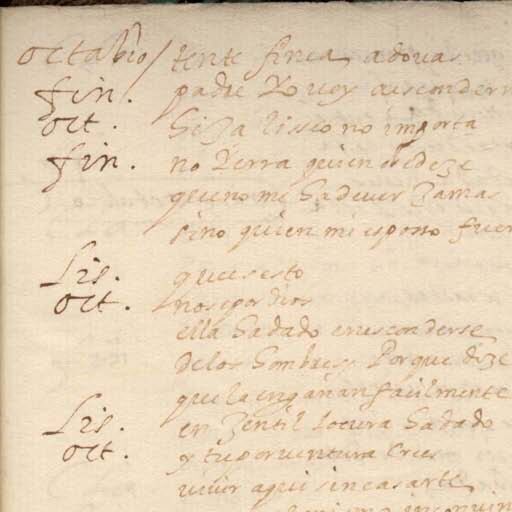 octabio / tente finea adovas
fin. padre Yo voy aesconderm
oct. si Ya liseo no importa
fin. no Yerra quien dize
que no me ha de ver Jamas
sino quien mi esposo fuer
Lis. que es esto
oct. no se por dios
ella ha dado en esconderse
de los hombres Porque dize
que la engañan facilmente
Lis. en Jentil locura ha dado
oct. y tu por ventura crees
vivir aqui sin casarte